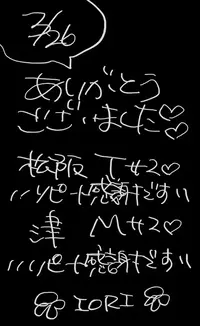 2/26
ありがとう
ございました♡♡
松阪 T#2♡
リピート感謝です
津 M#2♡
リピート感謝です
IORI